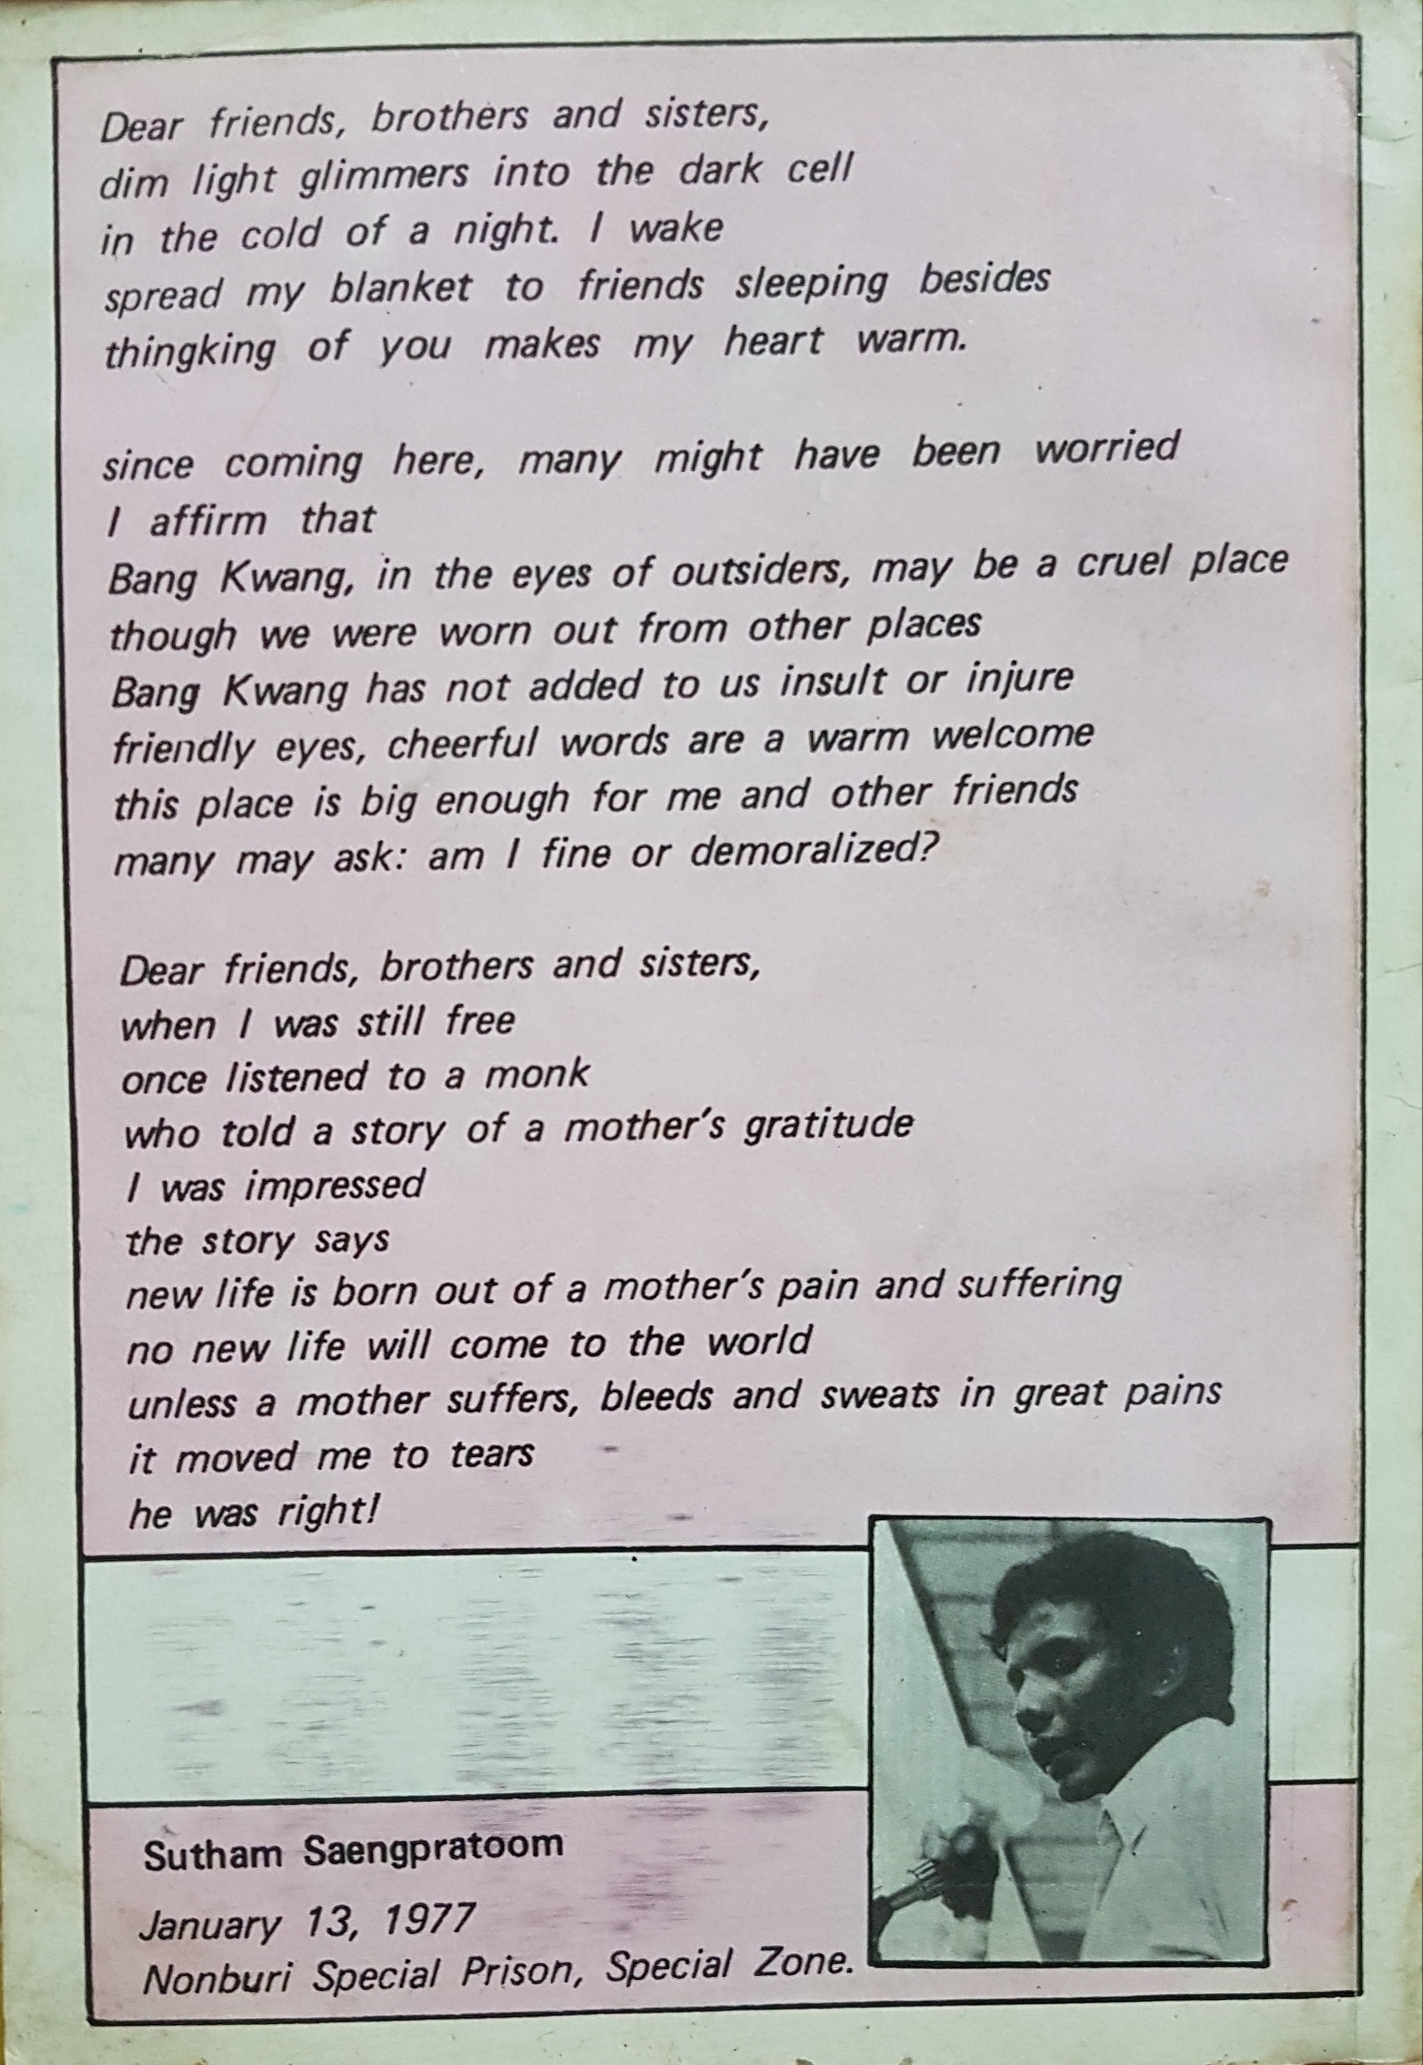 Dear friends, brothers and sisters,
dim light glimmers into the dark cell
in the cold of a night. I wake
spread my blanket to friends sleeping besides
thingking of you makes my heart warm.
since coming here, many might have been worried
I affirm that
Bang Kwang, in the eyes of outsiders, may be a cruel place
though we were worn out from other places
Bang Kwang has not added to us insult or injure
friendly eyes, cheerful words are a warm welcome
this place is big enough for me and other friends
many may ask: am I fine or demoralized?
Dear friends, brothers and sisters,
when I was still free
once listened to a monk
who told a story of a mother's gratitude
I was impressed
the story says
new life is born out of a mother's pain and suffering
no new life will come to the world
unless a mother suffers, bleeds and sweats in great pains
it moved me to tears
he was right!
Sutham Saengpratoom
January 13, 1977
Nonburi Special Prison, Special Zone.